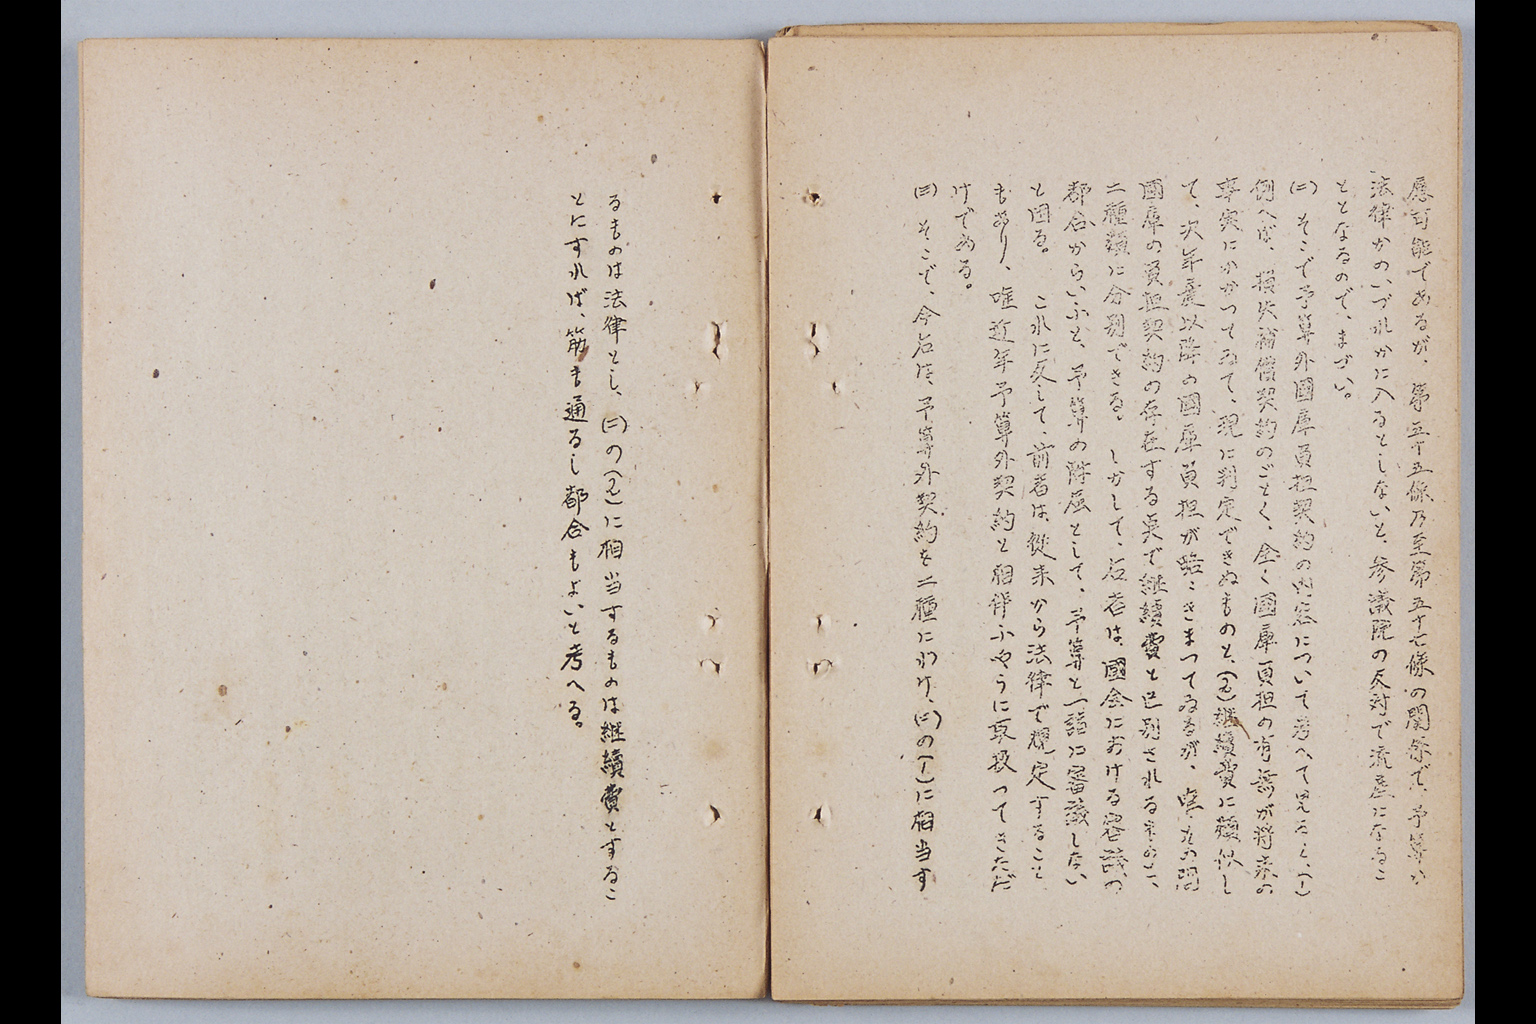 應可能であるが、第五十五條乃至第五十七條の関係で、予算か
法律かのいづれかに入るとしないと、参議院の反対で流産になるこ
ととなるので、まづい。
(二) そこで予算外國庫負担契約の内容について考へて見ると、(イ)
例へば、損失補償契約のごとく、全く國庫負担の有無が将来の
事実にかかつてゐて、現に判定できぬものと、(ロ)継續費に類似し
て、次年度以降の國庫負担が略〻きまつてゐるが、唯その間
國庫の負担契約の存在する点で継續費と区別されるものと、
二種類に分別できる。しかして、后者は、國会における審議の
都合からいふと、予算の附属として、予算と一諸に審議しない
と困る。これに反して、前者は、從来から法律で規定すること
もあり、唯近年予算外契約と相伴ふやうに取扱つてきただ
けである。
(三) そこで、今后は、予算外契約を二種にわけ、(二)の(イ)に相当す
るものは法律とし、(二)の(ロ)に相当するものは継續費とするこ
とにすれば、筋も通るし都合もよいと考へる。